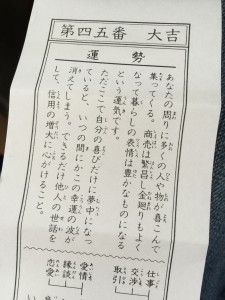 第四五番　大吉
運勢
あなたの周りに多くの人や物が喜こんで
集ってくる。商売は繁昌し金廻りもよく
なって暮らしの表情は豊かなものになる
という運気です。
ただここで自分の喜びだけに夢中になっ
ていると、いつの間にかこの幸運の波が
消えてしまう。できるだけ他人の世話を
して、信用の増大に心がけること。
仕事
交渉
取引
愛情
縁談
恋愛